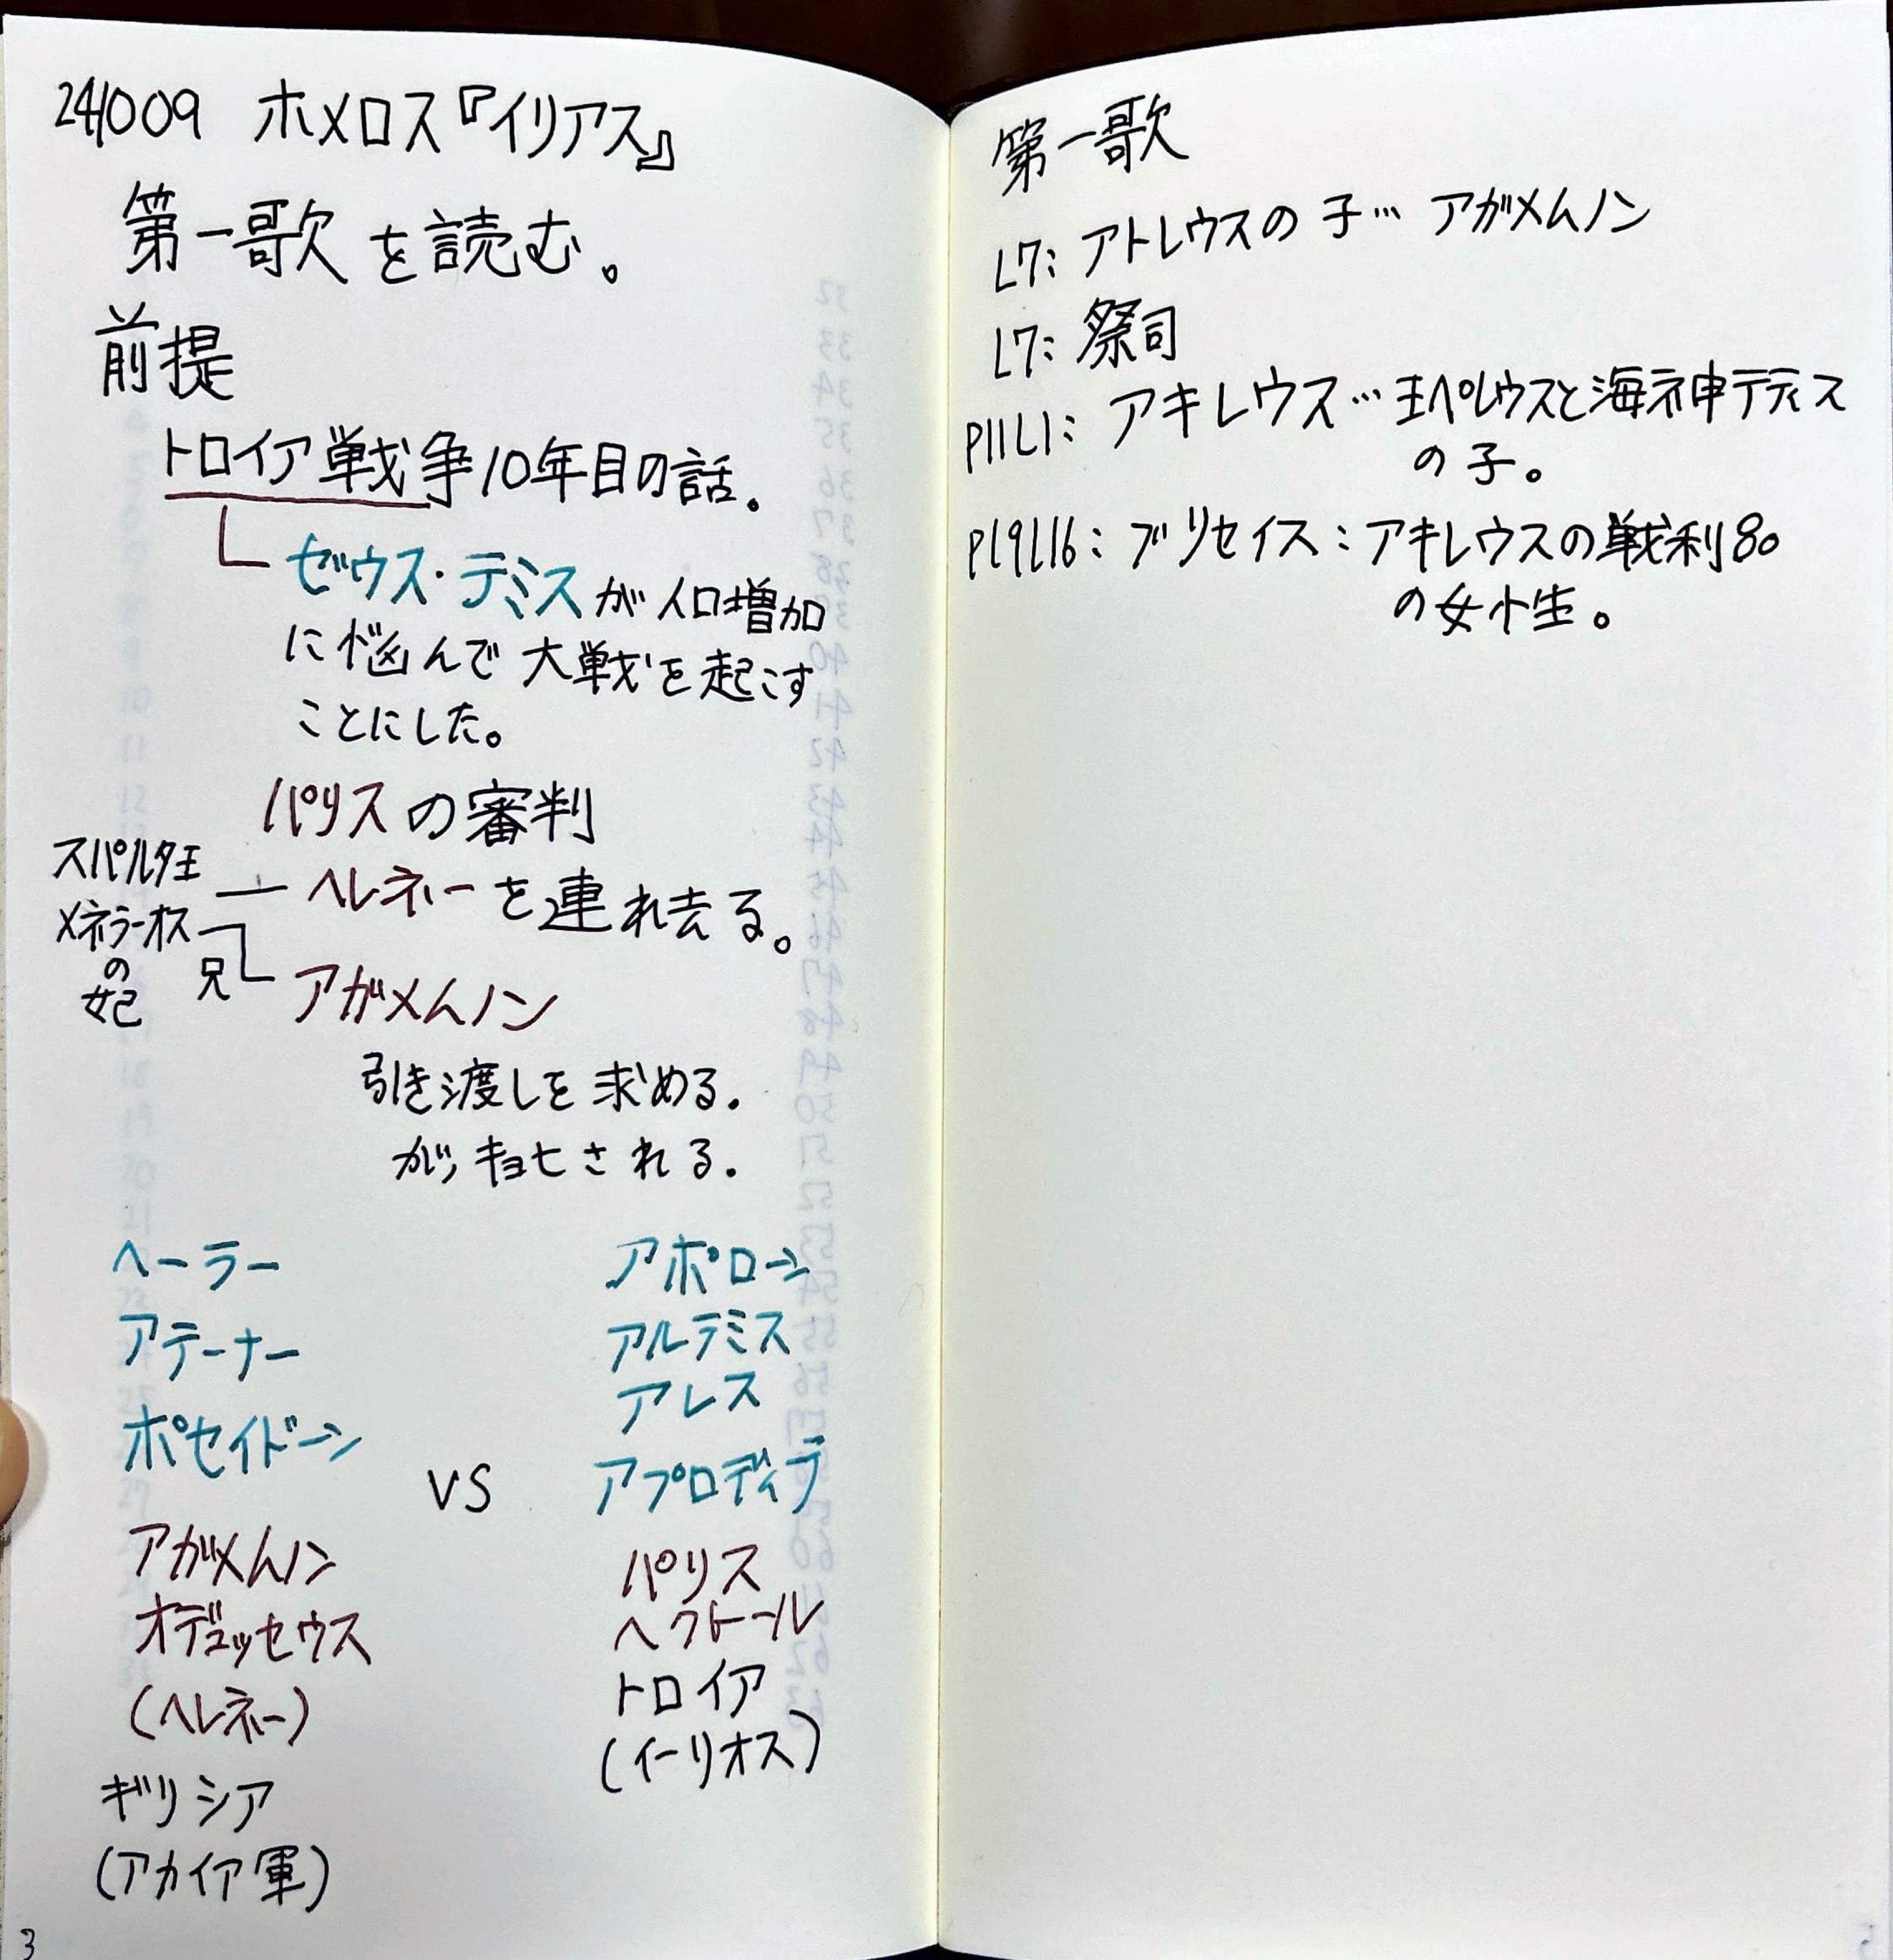 241009 ホメロス『イリアス』
第一歌を読む。
前提
トロイア戦争10年目の話。
ゼウス・テミスが人口増加
に悩んで大戦を起こす
ことにした。
パリスの審判
スパルタ王
メネラーオス
の
妃
ヘレネーを連れ去る。
兄
アガメムノン
引き渡しを求める.
が、キョヒされる.
ヘーラー
アテーナー
ポセイドーン
アガメムノン
オデュッセウス
(ヘレネー)
ギリシア
(アカイア軍)
VS
アポローン
アルテミス
アレス
アプロディテ
パリス
ヘクトール
トロイア
(イーリオス)
3
第一歌
L7: アトレウスの子… アガメムノン
L7: 祭司
P11L1: アキレウス… 王ペレウスと海神テティス
の子。
P19L16: ブリセイス:アキレウスの戦利品
の女性。